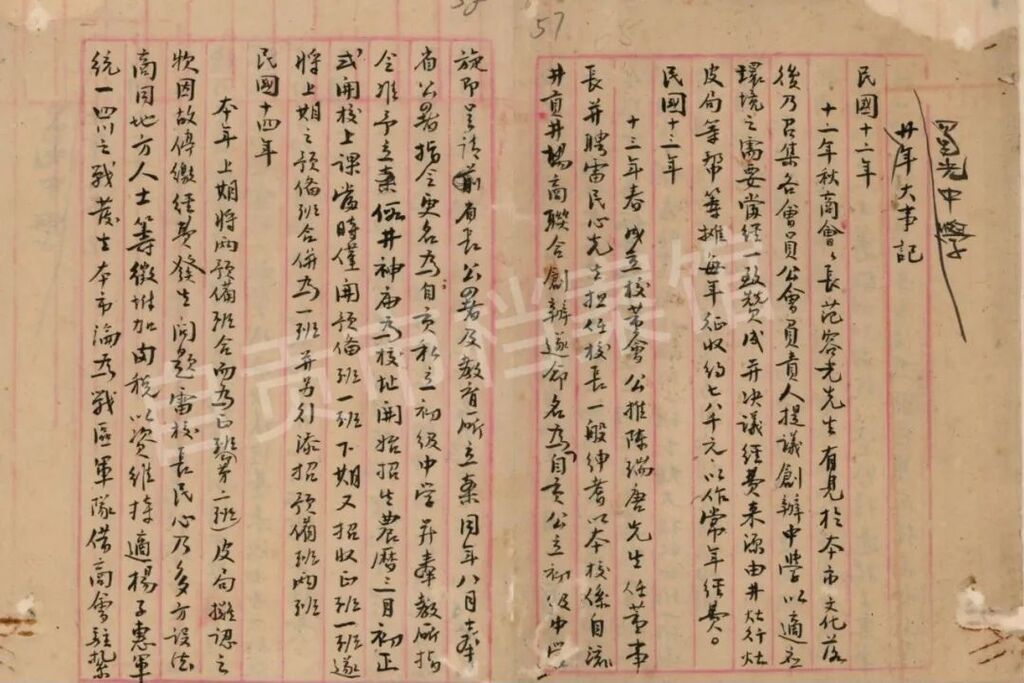 57
蜀光中學
廿年大事記
民國十二年
十二年秋商會會長范容光先生有見於本市文化落
後乃召集各會員公會員責人提議創辦中學以適應
環境之需要當經一致贊成并决議經費來源由井灶行灶
皮局等帮籌攤每年征收約七八千元以作常年經費。
民國十三年
十三年春成立校董會公推陳瑞唐先生任董事
長并聘雷民心先生担任校長一般紳耆以本校係自流
井貢井場商聯合創辦遂命名為自貢公立初級中學
58
旋即呈請前省長公署及教育所立案同年八月奉
省公署指令更名為自貢私立初級中學并奉教所指
令准予立案假井神庙為校址開始招生農曆三月初正
式開校上課當時僅開預備班一班下期又招收正班一班遂
將上期之預備班合併為一班并另行添招預備班兩班
民國十四年
本年上期將兩預備班合而為正班第二班皮局擬認之
欵因故停繳經費發生问題雷校長民心乃多方設法
商同地方人士等徵附加肉税以資維持適楊子惠軍
統一四川之戰發生本市淪為戰區軍隊借商會駐紮
自贡市档案馆